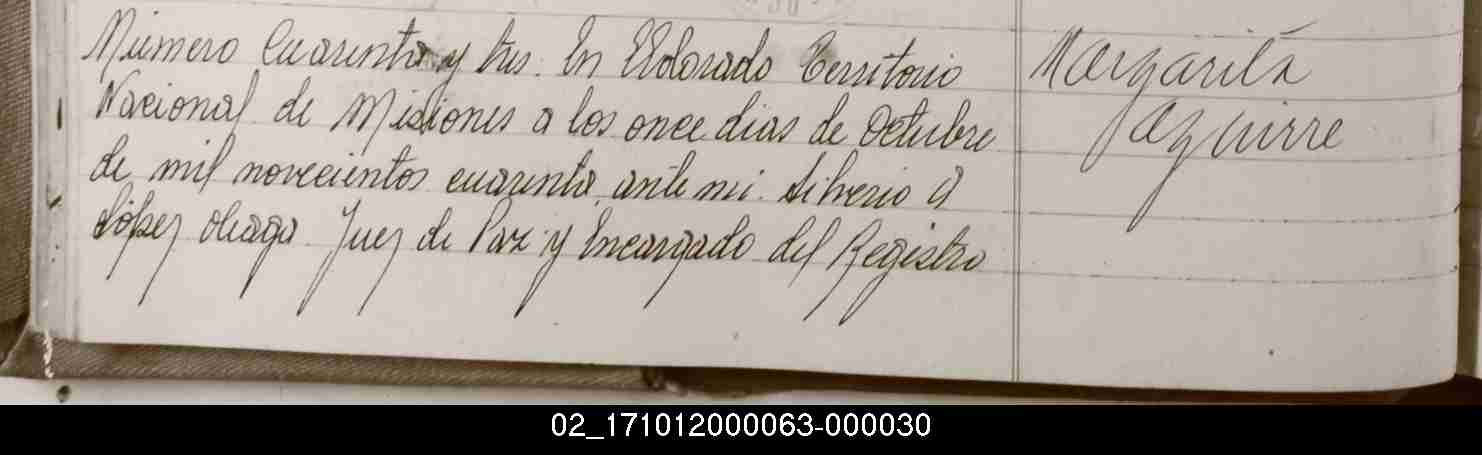 Número Cuarenta y tres. En Eldorado Territorio
Nacional de Misiones a los once dias de Octubre
de mil novecientos cuarenta, ante mi. Silverio A
López Oleaga Juez de Paz y Encargado del Registro
Margarita
Aguirre
02_171012000063-000030